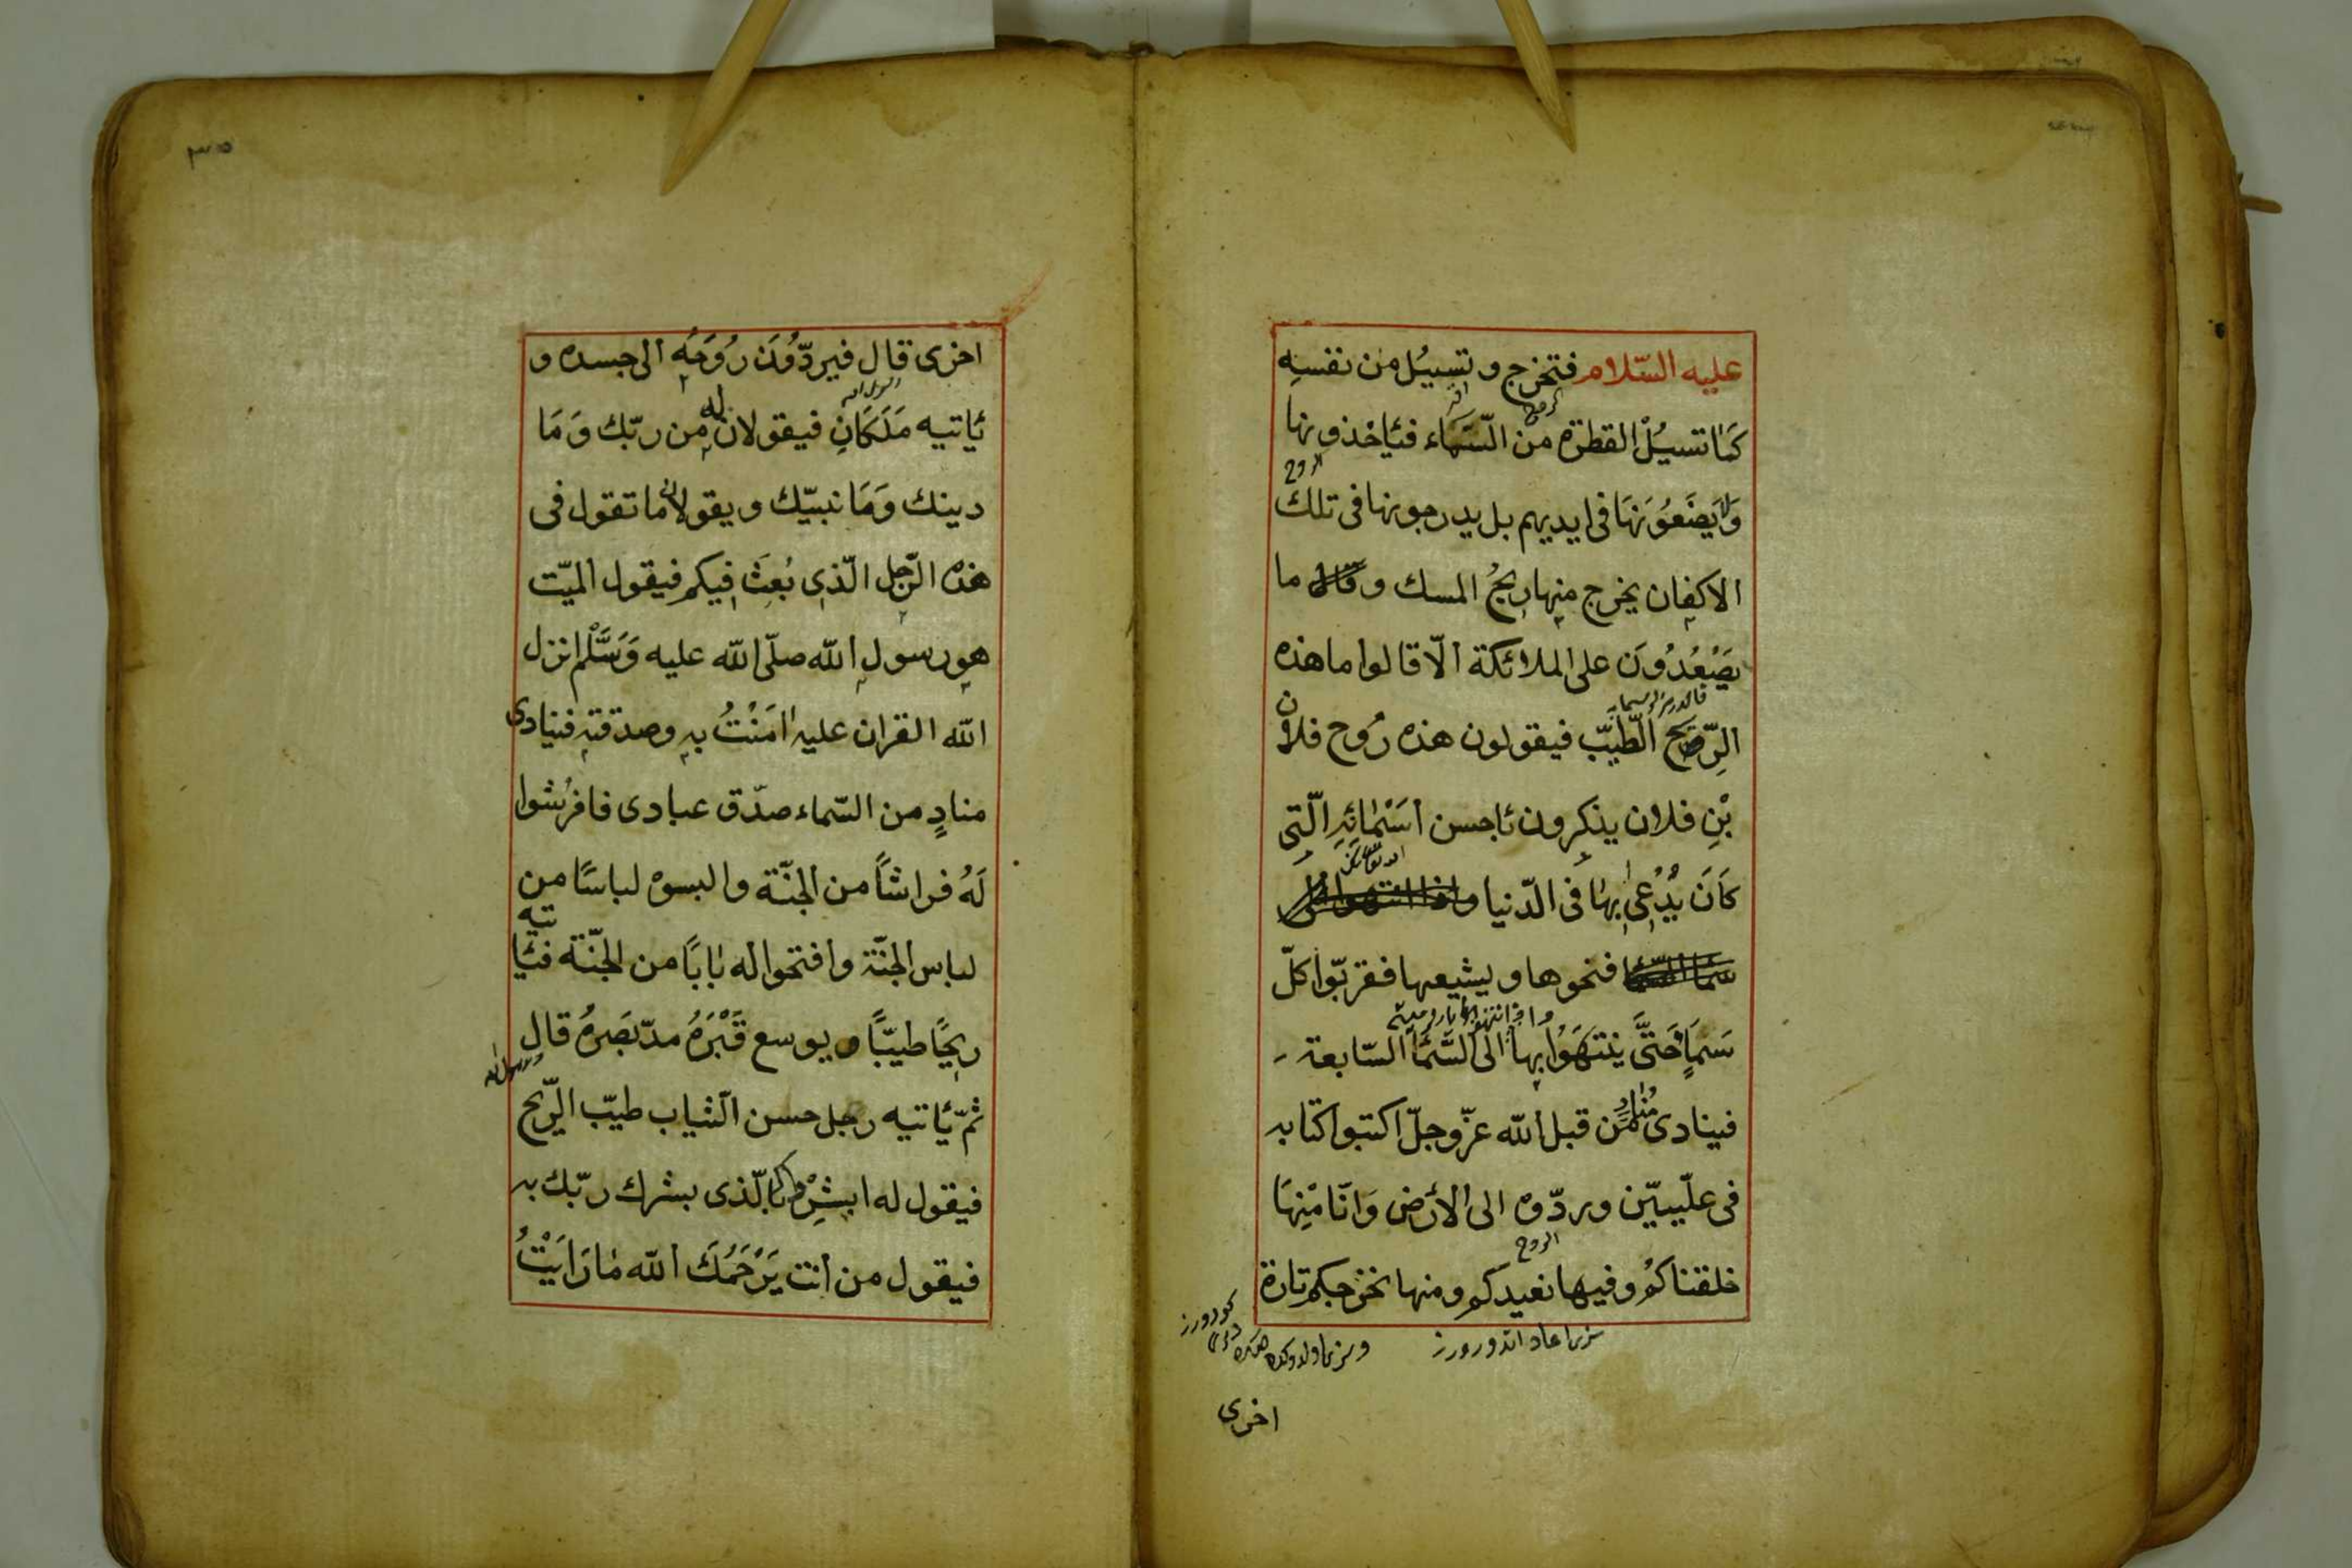 عليه السّلام فتخرج و تسيُل من نفسِه
كَمَا تسيُلُ القطرة من السَّمَاء فيَاخذونها
وَلَا يضَعُوَنهَا فى ايديهم بل يدرجونها فى تلك
الروح
الاكفان يخرج منها ريحُ المسك و قال ما
يَصْعُدُوَن على الملائكة الّا قالوا ما هذه
الرّيح الطّيبّ فيقولون هذه رُوح فلان
بْنِ فلان يذكرون ئاحسن اسَمْائِهِ الّتى
كَاَنَ يُدْعى بها فى الدّنيا و
فنحوها و يشيعها فقربّوا كلّ
سَمَاٍ حَتَّى ينتهَوُا بها الى السَّمَا السّابعة
فينادى مُنادٍ من قبل الله عزّوجلّ اكتبوا كتابه
فى علّييّن و ردّوه الى الأرض وَانَا مْنِهَا
الروح
خلقناكمُ و فيها نعيدكم و منها نخرجكم تارة
اخرى
٣٠٥
اخرى قال فيردّوُنَ رُوحَهُ الى جسده و
ئاتيه مَلَكَانِ فيقولان له من ربّك وَمَا
دينك وَمَا نبيّك و يقولان ما تقول فى
هذه الرّجل الّذى بُعِثَ فيكم فيقول الميّت
هو رسول الله صلّى الله عليه وَسَلَّمْ انزل
الله القران عليه امَنْتُ به وصدقته فينادى
منادٍ من السّماء صدّق عبادى فافرُشوا
لَهُ فراشاً من الجنّة و البسوه لباسًا من
لباس الجنّة و افتحوا له بابًا من الجنّة فيَاتيه
ريحًا طيبّاً و يوسع قَبْرَهُ مدّ بَصَرهُ قال
رسول الله
ثمّ يَّاتيه رجل حسن الثياب طيبّ الرّيح
فيقول له ابشِرْ بالّذى بشرك ربّك به
فيقول من انت يَرْحَمُكَ الله مَا رَايَتْ